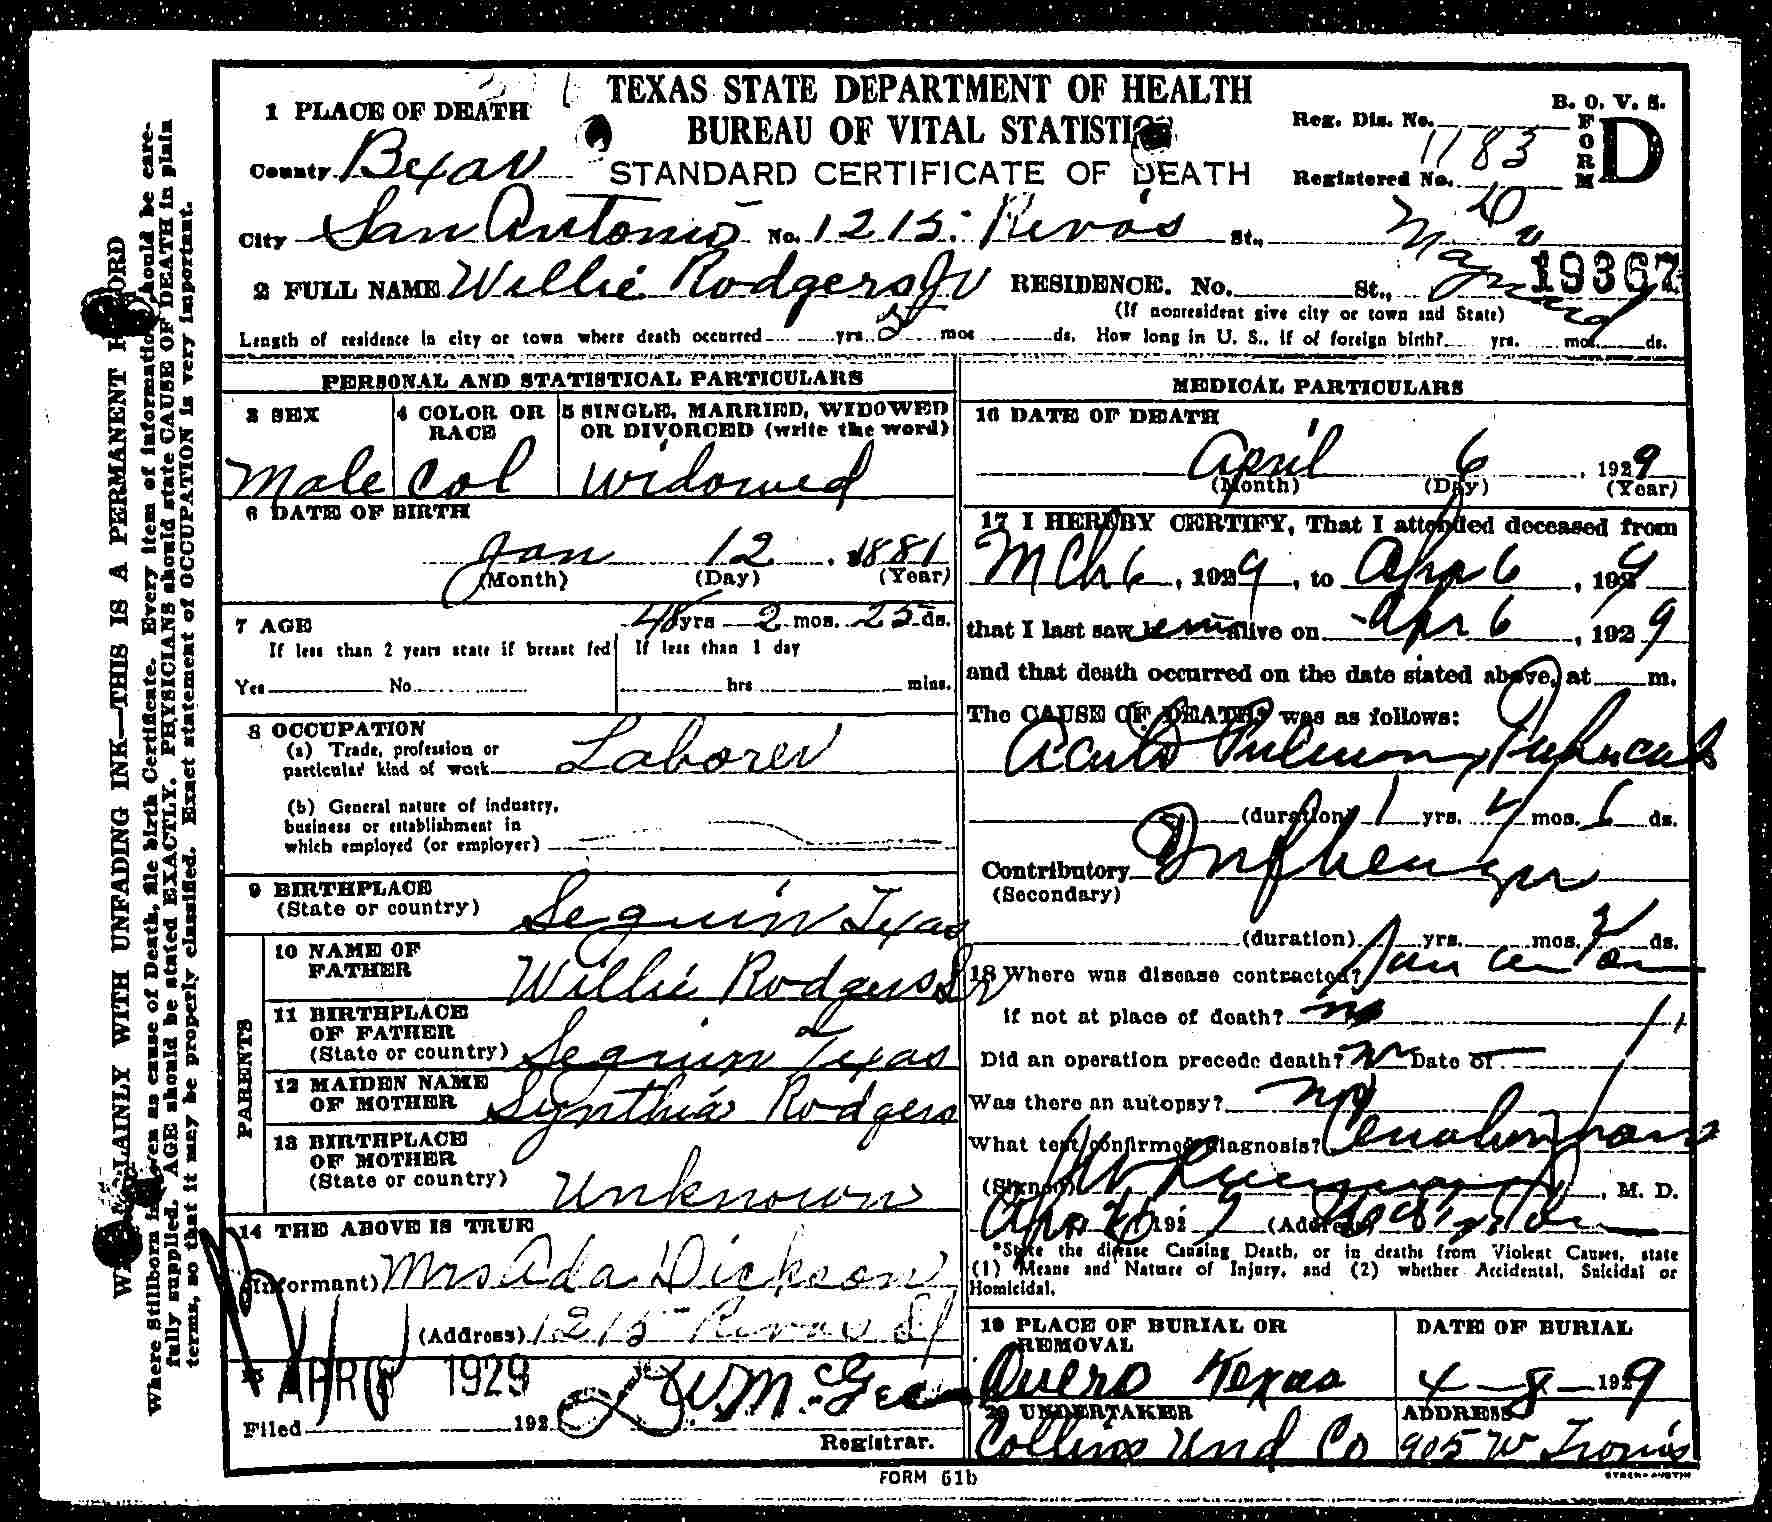 TEXAS STATE DEPARTMENT OF HEALTH
BUREAU OF VITAL STATISTICS
STANDARD CERTIFICATE OF DEATH
B. O. V. S.
FORM D
Reg. Dis. No.
Registered No. 1183
1 PLACE OF DEATH
County Bexar
City San Antonio No. 1215 Rivas St.,
19367
2 FULL NAME Willie Rodgers Jr RESIDENCE. No. St.,
(If nonresident give city or town and State)
Length of residence in city or town where death occurred yrs. mos ds. How long in U. S., if of foreign birth? yrs. mos. ds.
PERSONAL AND STATISTICAL PARTICULARS
3 SEX
Male
4 COLOR OR RACE
Col
5 SINGLE, MARRIED, WIDOWED OR DIVORCED (write the word)
Widowed
6 DATE OF BIRTH
Jan 12, 1881
(Month) (Day) (Year)
7 AGE 48 yrs 2 mos. 25 ds.
If less than 2 years state if breast fed
Yes No
If less than 1 day
hrs mins.
8 OCCUPATION
(a) Trade, profession or
particular kind of work Laborer
(b) General nature of industry,
business or establishment in
which employed (or employer)
9 BIRTHPLACE
(State or country) Seguin Texas
PARENTS
10 NAME OF
FATHER Willie Rodgers Sr
11 BIRTHPLACE
OF FATHER
(State or country) Seguin Texas
12 MAIDEN NAME
OF MOTHER Synthia Rodgers
13 BIRTHPLACE
OF MOTHER
(State or country) Unknown
14 THE ABOVE IS TRUE
(Informant) Mrs Ada Dickson
(Address) 1215 Rivas St
15 APR 1929
Filed 192 McGee
Registrar.
MEDICAL PARTICULARS
16 DATE OF DEATH
April 6, 1929
(Month) (Day) (Year)
17 I HEREBY CERTIFY, That I attended deceased from
Mch 6, 1929, to Apr 6, 1929
that I last saw h em alive on Apr 6, 1929
and that death occurred on the date stated above, at m.
The CAUSE OF DEATH* was as follows:
Acute Pulmonary
(duration) 1 yrs. mos. 6 ds.
Contributory Influenza
(Secondary)
(duration) yrs. mos. ds.
18 Where was disease contracted? San Anton
if not at place of death? no
Did an operation precede death? no Date of
Was there an autopsy? no
What test confirmed diagnosis?
(Signed) M. D.
192 (Address)
*State the disease Causing Death, or in deaths from Violent Causes, state
(1) Means and Nature of Injury, and (2) whether Accidental, Suicidal or
Homicidal.
19 PLACE OF BURIAL OR
REMOVAL
Cuero Texas
DATE OF BURIAL
4-8-1929
20 UNDERTAKER
Collins Und Co
ADDRESS
905 W
FORM 61b
WRITE PLAINLY WITH UNFADING INK—THIS IS A PERMANENT RECORD
Where Stillborn is given as cause of Death, file birth Certificate. Every item of information should be care-
fully supplied. AGE should be stated EXACTLY. PHYSICIANS should state CAUSE OF DEATH in plain
terms, so that it may be properly classified. Exact statement of OCCUPATION is very important.